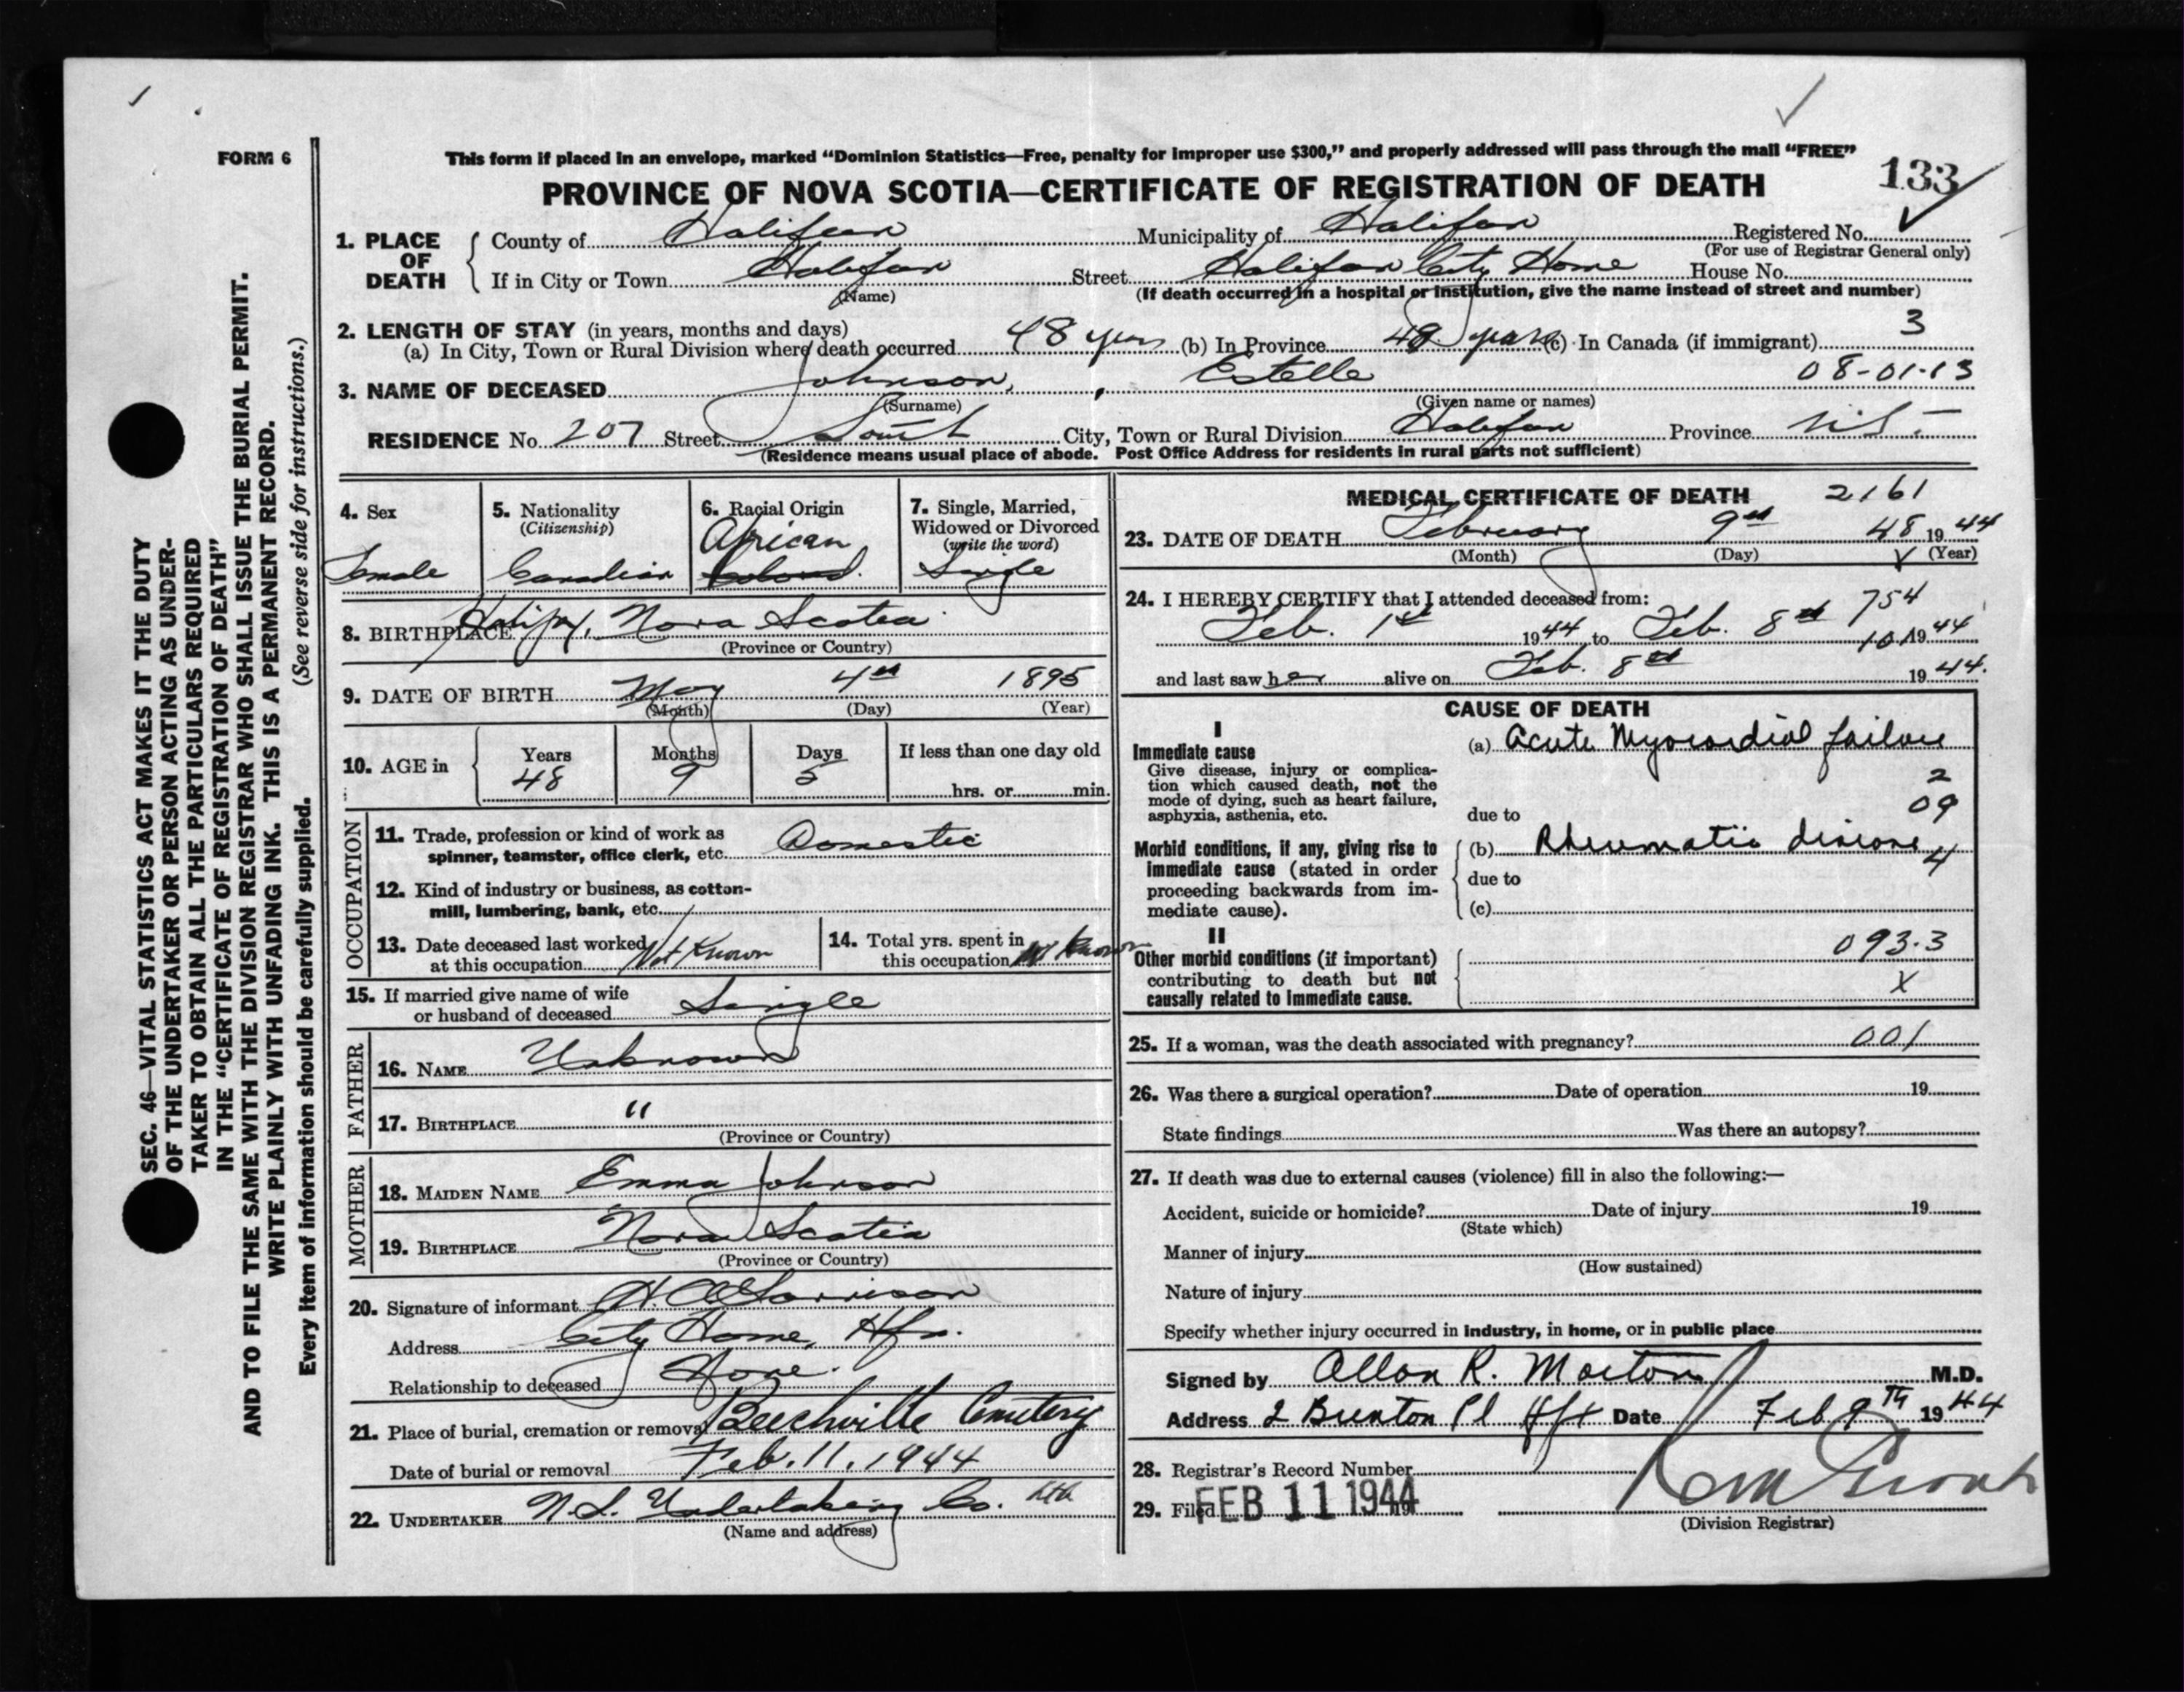 FORM 6
This form if placed in an envelope, marked “Dominion Statistics—Free, penalty for improper use $300,” and properly addressed will pass through the mail “FREE”
133
PROVINCE OF NOVA SCOTIA—CERTIFICATE OF REGISTRATION OF DEATH
1. PLACE OF DEATH
County of Halifax Municipality of Halifax Registered No.
(For use of Registrar General only)
If in City or Town Halifax Street Halifax City Home House No.
(Name) (If death occurred in a hospital or institution, give the name instead of street and number)
2. LENGTH OF STAY (in years, months and days)
(a) In City, Town or Rural Division where death occurred 48 years (b) In Province 48 years (c) In Canada (if immigrant) 3
3. NAME OF DECEASED Johnson, Estelle 08-01-13
(Surname) (Given name or names)
RESIDENCE No. 207 Street South City, Town or Rural Division Halifax Province N.S.
(Residence means usual place of abode. Post Office Address for residents in rural parts not sufficient)
4. Sex
Female
5. Nationality
(Citizenship)
Canadian
6. Racial Origin
African
7. Single, Married,
Widowed or Divorced
(write the word)
Single
8. BIRTHPLACE Halifax, Nova Scotia
(Province or Country)
9. DATE OF BIRTH May 4th 1895
(Month) (Day) (Year)
10. AGE in
Years Months Days If less than one day old
48 9 5
hrs. or min.
OCCUPATION
11. Trade, profession or kind of work as
spinner, teamster, office clerk, etc. Domestic
12. Kind of industry or business, as cotton-
mill, lumbering, bank, etc.
13. Date deceased last worked
at this occupation Not Known
14. Total yrs. spent in
this occupation Not Known
15. If married give name of wife
or husband of deceased Single
FATHER
16. NAME Unknown
17. BIRTHPLACE "
(Province or Country)
MOTHER
18. MAIDEN NAME Emma Johnson
19. BIRTHPLACE Nova Scotia
(Province or Country)
20. Signature of informant
Address City Home, Hfx.
Relationship to deceased None.
21. Place of burial, cremation or removal Beechville Cemetery
Date of burial or removal Feb. 11, 1944
22. UNDERTAKER N.S. Undertaking Co. Ltd
(Name and address)
MEDICAL CERTIFICATE OF DEATH 2161
23. DATE OF DEATH February 9th 48 1944
(Month) (Day) (Year)
24. I HEREBY CERTIFY that I attended deceased from: 754
Feb. 1st 1944 to Feb. 8th 1944
and last saw her alive on Feb. 8th 1944.
CAUSE OF DEATH
I
Immediate cause
Give disease, injury or complica-
tion which caused death, not the
mode of dying, such as heart failure,
asphyxia, asthenia, etc.
(a) Acute Myocardial failure
2
09
due to
Morbid conditions, if any, giving rise to
immediate cause (stated in order
proceeding backwards from im-
mediate cause).
(b) Rheumatic disease 4
due to
(c)
II
Other morbid conditions (if important)
contributing to death but not
causally related to immediate cause.
093.3
X
25. If a woman, was the death associated with pregnancy? 001
26. Was there a surgical operation? Date of operation 19
State findings Was there an autopsy?
27. If death was due to external causes (violence) fill in also the following:—
Accident, suicide or homicide? Date of injury 19
(State which)
Manner of injury
(How sustained)
Nature of injury
Specify whether injury occurred in industry, in home, or in public place
Signed by Allan R. Morton M.D.
Address 2 Brenton Pl Hfx Date Feb 9th 1944
28. Registrar's Record Number
29. Filed FEB 11 1944 19
(Division Registrar)
SEC. 46—VITAL STATISTICS ACT MAKES IT THE DUTY
OF THE UNDERTAKER OR PERSON ACTING AS UNDER-
TAKER TO OBTAIN ALL THE PARTICULARS REQUIRED
IN THE “CERTIFICATE OF REGISTRATION OF DEATH”
AND TO FILE THE SAME WITH THE DIVISION REGISTRAR WHO SHALL ISSUE THE BURIAL PERMIT.
WRITE PLAINLY WITH UNFADING INK. THIS IS A PERMANENT RECORD.
Every item of information should be carefully supplied. (See reverse side for instructions.)